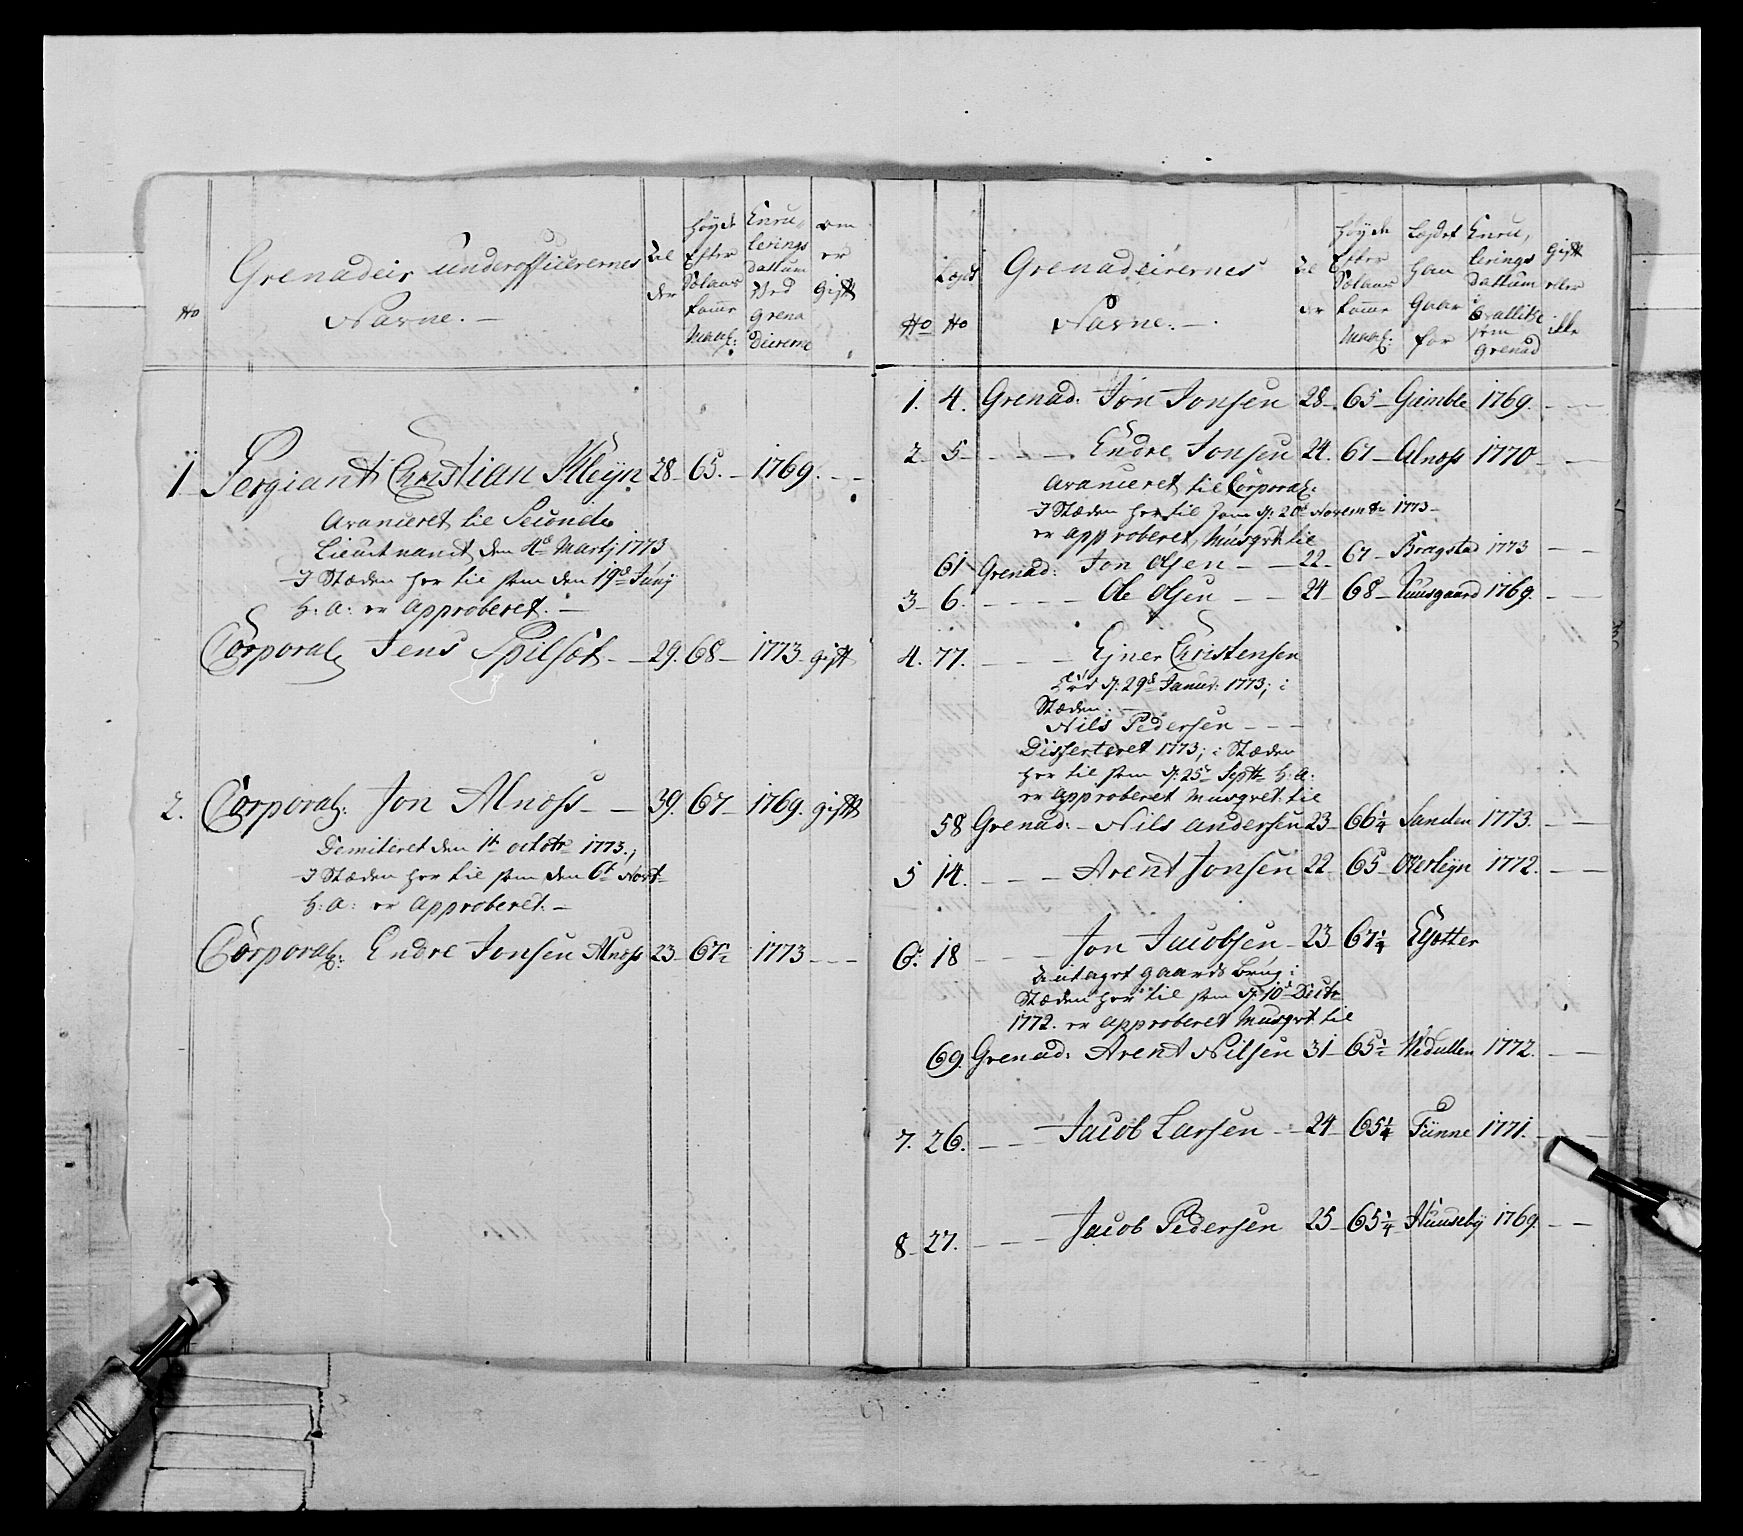 No
Grenadeir underofficerernes
Navne. —
Al
der
Høyde
Efter
Sælans
Comr
Maal:
Enru,
lerings
Dattum
Ved
Grena
deirerne
om
er
gift
1 Sergiant Christian Kleyn 28 65. — 1769. — —
Avanceret til Second
Lieutnandt den 4de Martj 1773
I Stæden her til som den 19de Junj
h: a: er Approberet. —
Corporal Jens Spilsöt — 29. 68 — 1773 gift
2. Corporal: Jon Alnæss — — 39. 67 — 1769. gift
Demiteret den 1te octobr 1773.,
I Stæden her til som den 6t
h: a: er Approberet. —
Corporal: Endre Jonsen Alnæss 23 — 67½ 1773 — — —
No
Lægds
No
Grenadeirernes
Navne. — .
Al
der
Høyde
Efter
Sælans
Comr
Maal:
Lægdet
han
Gaar
for
Enru,
lerings
Dattum
som
Grenad
Gift
eller
ikke
1. 4. Grenad: Jon Jonsen 28 — 65 — Gimble 1769. — —
2. 5 — — — Endre Jonsen 24. 67 — Alnæss 1770 — —
Avanceret til Corporal:
I Stæden her til som d: 20de Novembr 1773 —
er approberet, Musqvt til
61 Grenad: Jon Olsen — — 22 — 67 — Bragstad 1773 — —
3 — 6. — — — Ole Olsen — — 24 — 68 — Tuusgaard 1769. — —
4. 77. — — — Ejner Christensen
Död d: 29de Januar: 1773; i
Stæden. —
Nils Pedersen — — —
Disserteret 1773; i Stæden
her til som d: 25de Septbr h: a:
er approberet Musqvet: til
58 Grenad: — Nils Andersen 23 — 66¼ Sanden 1773. — —
5 14. — — — Arent Jonsen 22 — 65 — 1772. — —
6. 18 — — — Jon Jacobsen — 23 — 67¼
Antaget gaards Brug i
Stæden her til som d: 10de Decbr
1772. er approberet Musqvt til
69. Grenad: Arent Nilsen 31 — 65½ 1772. — —
7. 26. — — — Jacob Larsen — — 24 — 65¼ Tünne 1771. — —
8 — 27. — — — Jacob Pedersen 25 — 65¼ Huuseby 1769 — —